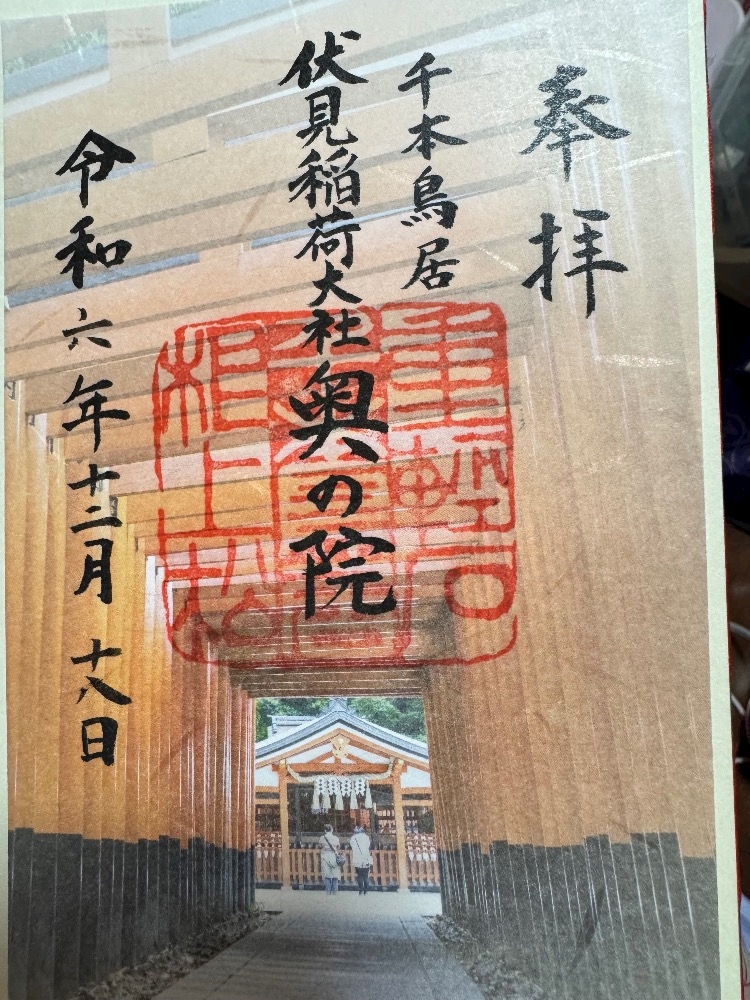 奉拝
千本鳥居
伏見稲荷大社奥の院
令和六年十二月十八日